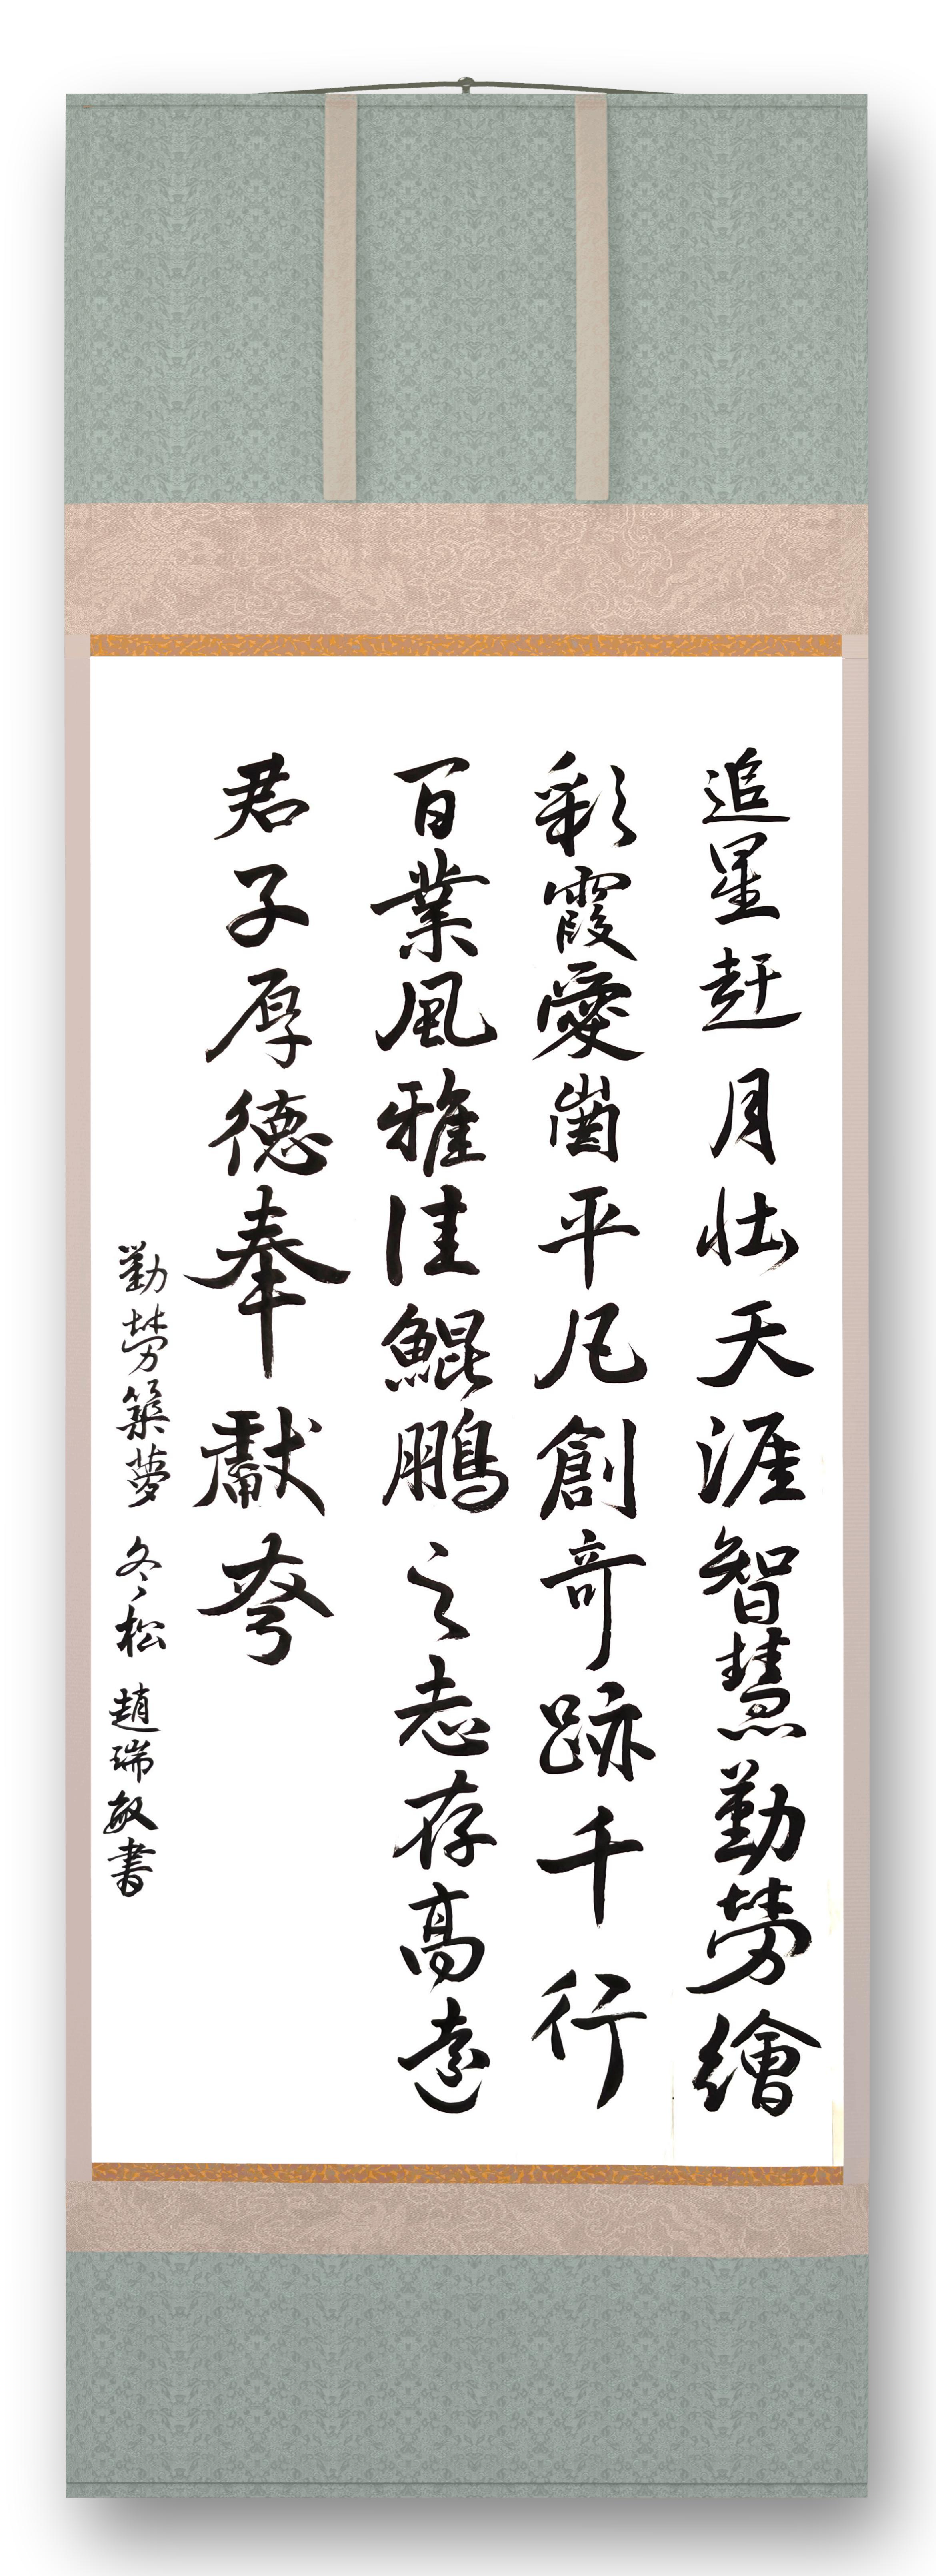 追星赶月壮天涯智慧勤勞繪
彩霞愛崗平凡創奇跡千行
百業風雅佳鯤鵬之志存高遠
君子厚德奉獻夸
勤勞築夢 冬松 趙瑞敏書